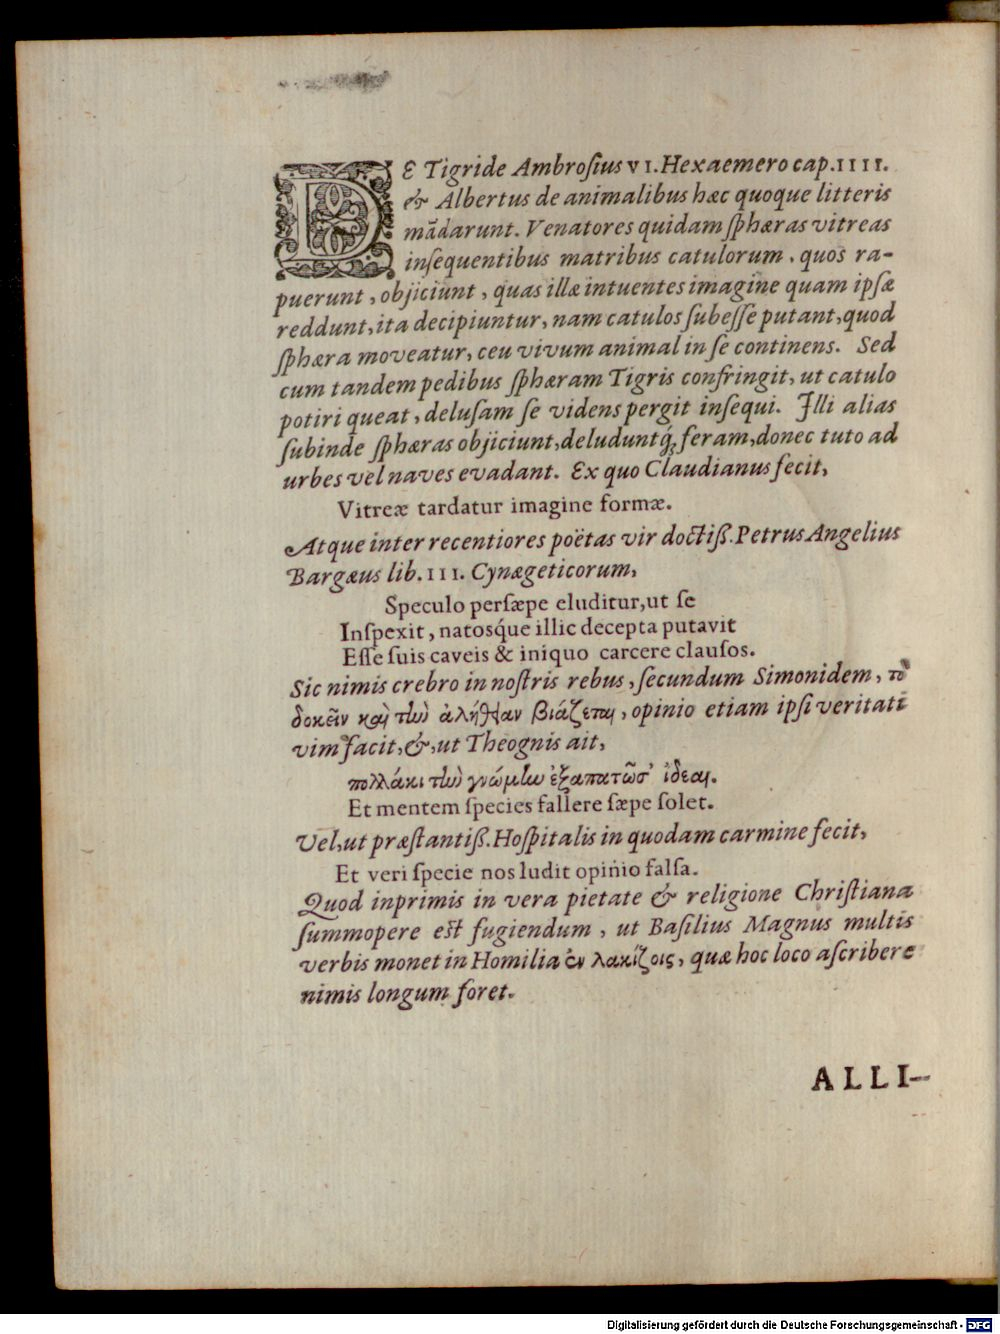 DE Tigride Ambrosius VI. Hexaemero cap. IIII.
& Albertus de animalibus hæc quoque litteris
mãdarunt. Venatores quidam sphæras vitreas
insequentibus matribus catulorum, quos ra-
puerunt, objiciunt, quas illæ intuentes imagine quam ipsæ
reddunt, ita decipiuntur, nam catulos subesse putant, quod
sphæra moveatur, ceu vivum animal in se continens. Sed
cum tandem pedibus sphæram Tigris confringit, ut catulo
potiri queat, delusam se videns pergit insequi. Illi alias
subinde sphæras objiciunt, deluduntq́; feram, donec tuto ad
urbes vel naves evadant. Ex quo Claudianus fecit,
Vitreæ tardatur imagine formæ.
Atque inter recentiores poëtas vir doctiß. Petrus Angelius
Bargæus lib. III. Cynægeticorum,
Speculo persæpe eluditur, ut se
Inspexit, natosq́ue illic decepta putavit
Esse suis caveis & iniquo carcere clausos.
Sic nimis crebro in nostris rebus, secundum Simonidem, τὸ
δοκεῖν καὶ τὴν ἀλήθειαν βιάζεται, opinio etiam ipsi veritati
vim facit, &, ut Theognis ait,
πολλάκι τὴν γνώμην ἐξαπατῶσ' ἰδέαι.
Et mentem species fallere sæpe solet.
Vel, ut præstantiß. Hospitalis in quodam carmine fecit,
Et veri specie nos ludit opinio falsa.
Quod inprimis in vera pietate & religione Christiana
summopere est fugiendum, ut Basilius Magnus multis
verbis monet in Homilia ἐν λακίζοις, quæ hoc loco ascribere
nimis longum foret.
ALLI-
Digitalisierung gefördert durch die Deutsche Forschungsgemeinschaft - DFG